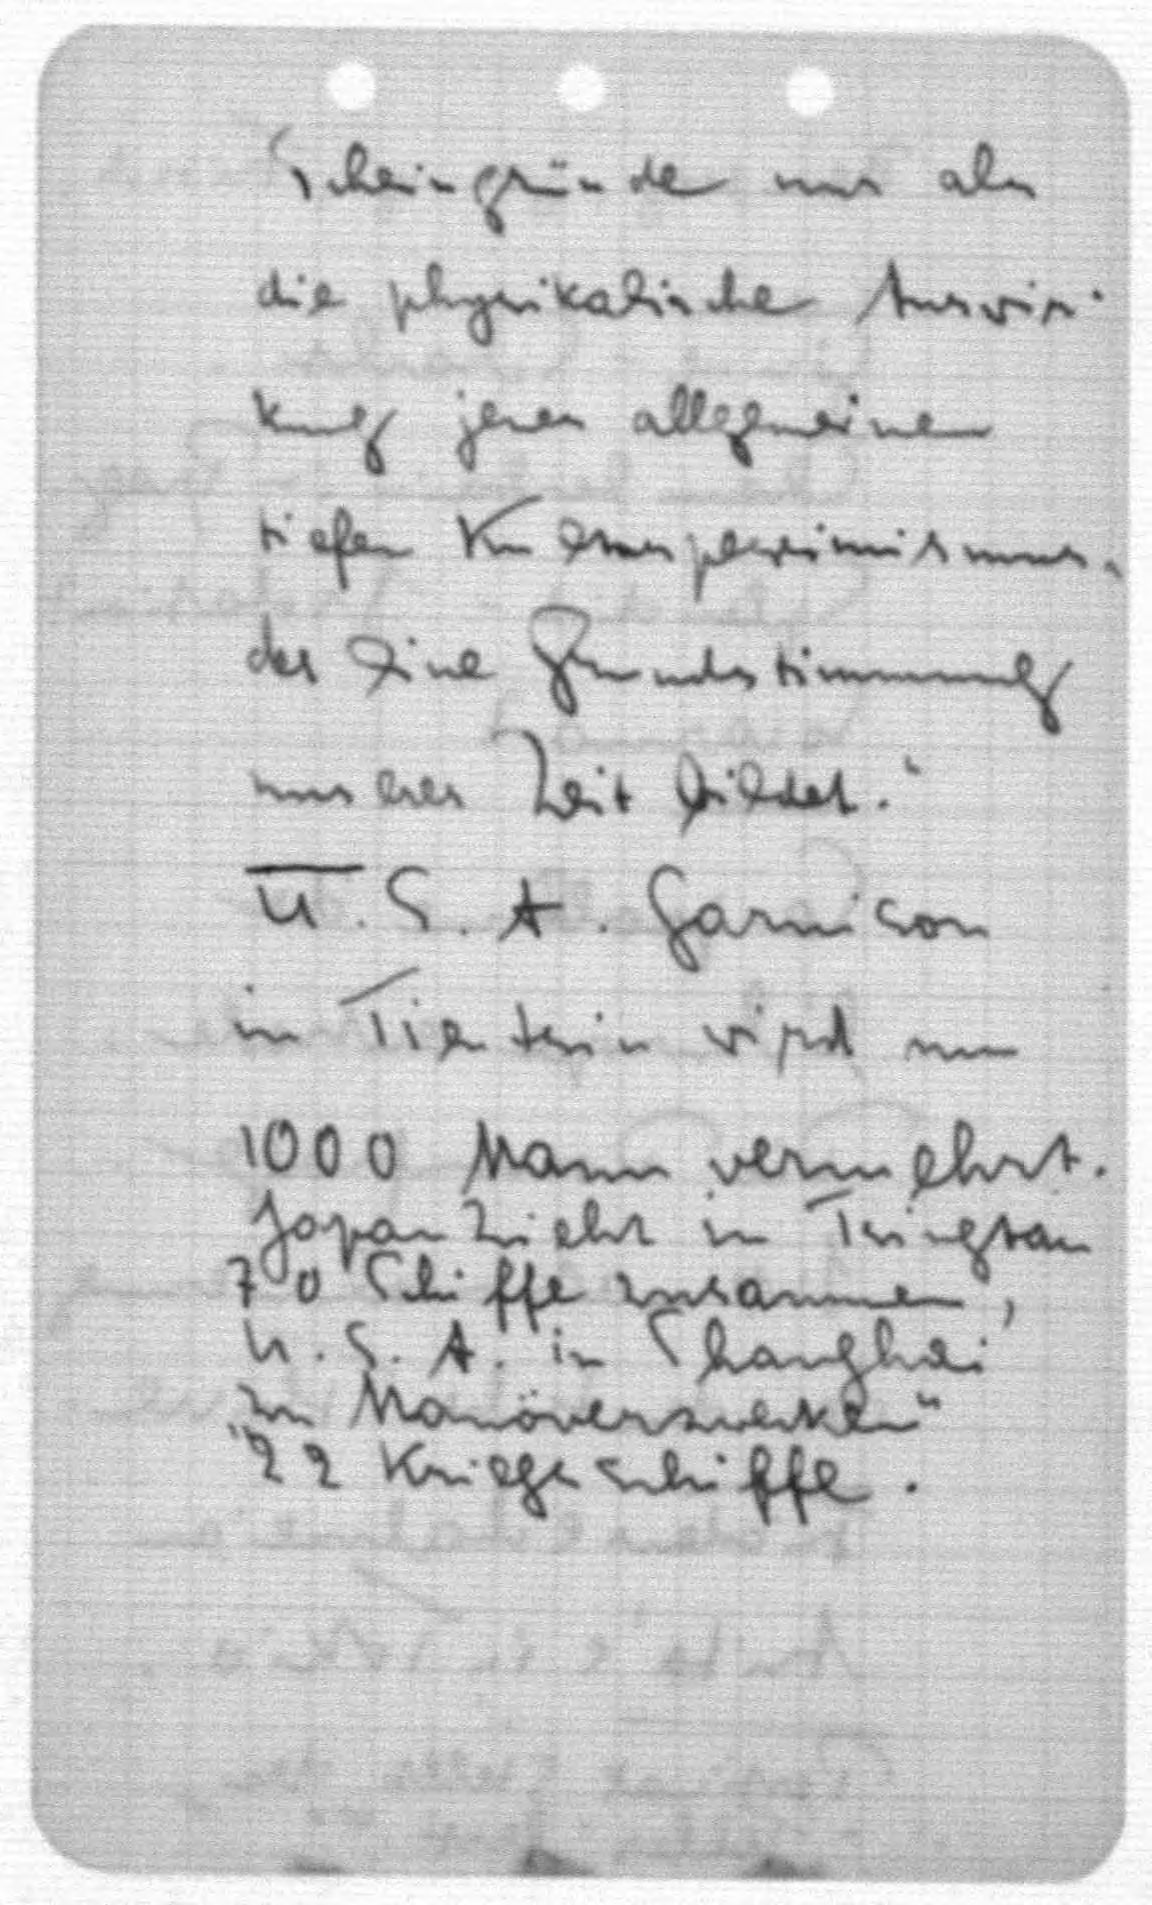 Scheingründe nur als
die physikalische Auswir-
kung jenes allgemeinen
tiefen Kulturpessimismus,
der eine Grundstimmung
unserer Zeit bildet."
U.S.A. Garnison
in Tientsin wird um
1000 Mann vermehrt.
Japan zieht in Tsingtau
70 Schiffe zusammen,
U.S.A. in Shanghai
"zu Manöverzwecken"
22 Kriegsschiffe.